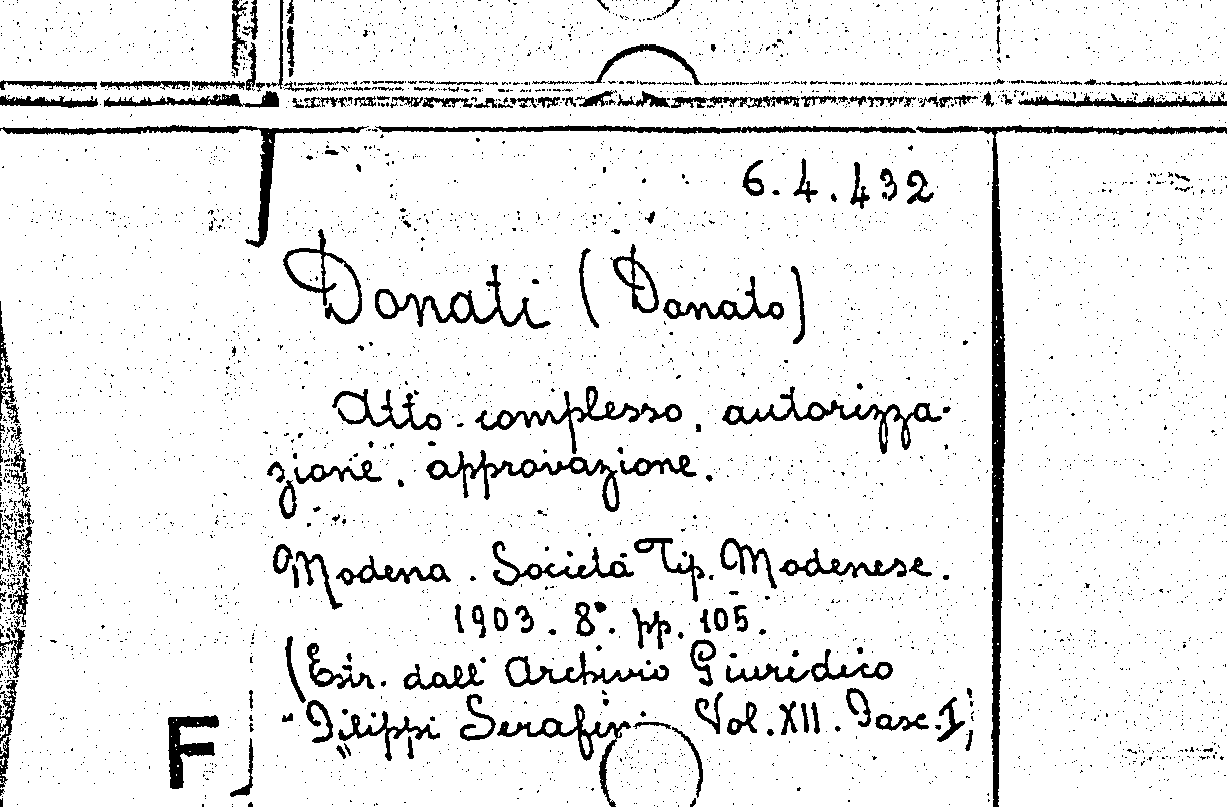 6.4.432
Donati (Donato)
Atto complesso, autorizza-
zione, approvazione.
Modena. Società Tip. Modenese.
1903. 8°. pp. 105.
(Estr. dall' Archivio Giuridico
"Filippi Serafini" Vol. XII. Fasc. I)
F